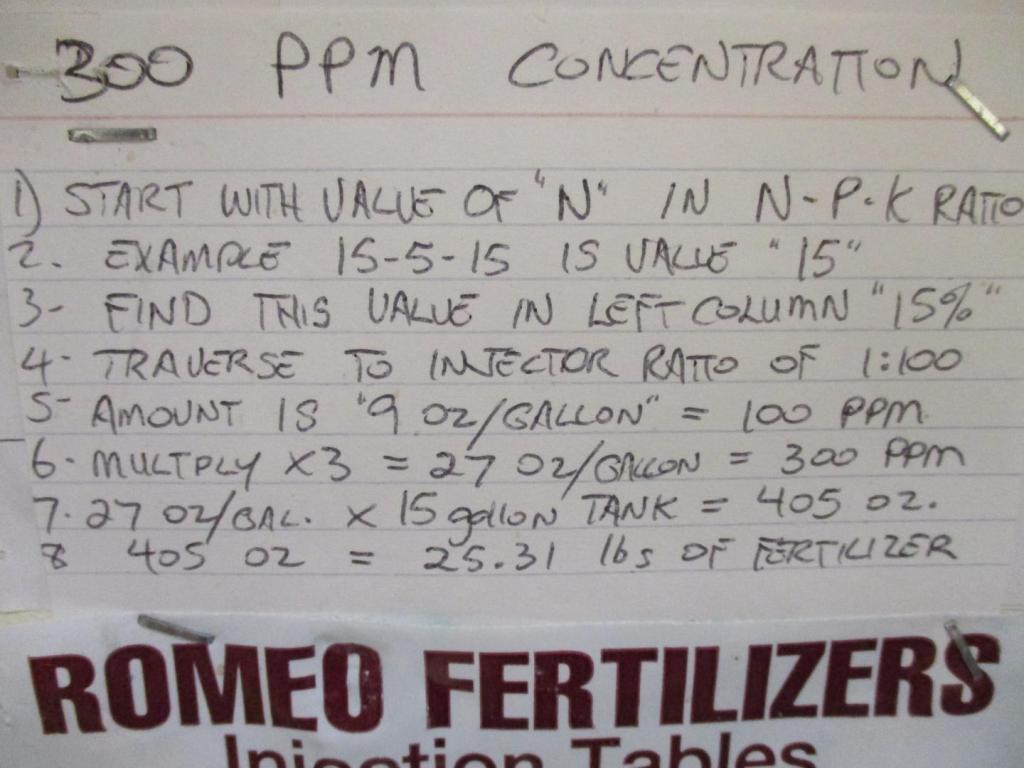 300 PPM CONCENTRATION
1) START WITH VALUE OF "N" IN N-P-K RATIO
2. EXAMPLE 15-5-15 IS VALUE "15"
3- FIND THIS VALUE IN LEFT COLUMN "15%"
4- TRAVERSE TO INJECTOR RATIO OF 1:100
5- AMOUNT IS "9 OZ/GALLON" = 100 PPM
6- MULTPLY X3 = 27 OZ/GALLON = 300 PPM
7. 27 OZ/GAL. X 15 gallon TANK = 405 OZ.
8 405 OZ = 25.31 lbs OF FERTILIZER
ROMEO FERTILIZERS
Injection Tables